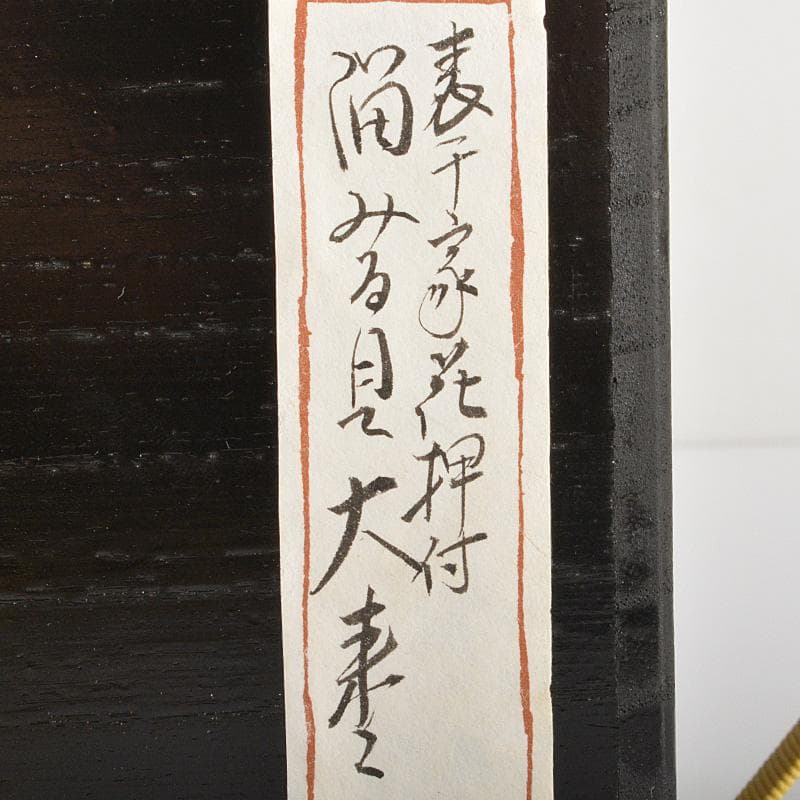 表千家花押付
溜みる貝大棗